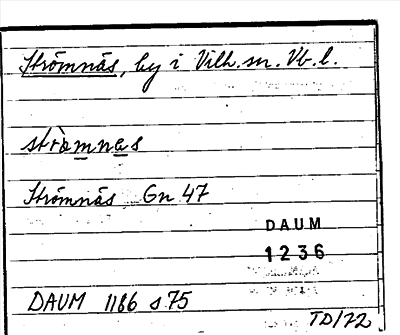 Strömnäs, by i Vilh. sn. Vb. l.
stròmnas
Strömnäs Gn 47
DAUM
1236
DAUM 1186 s 75
TD/72